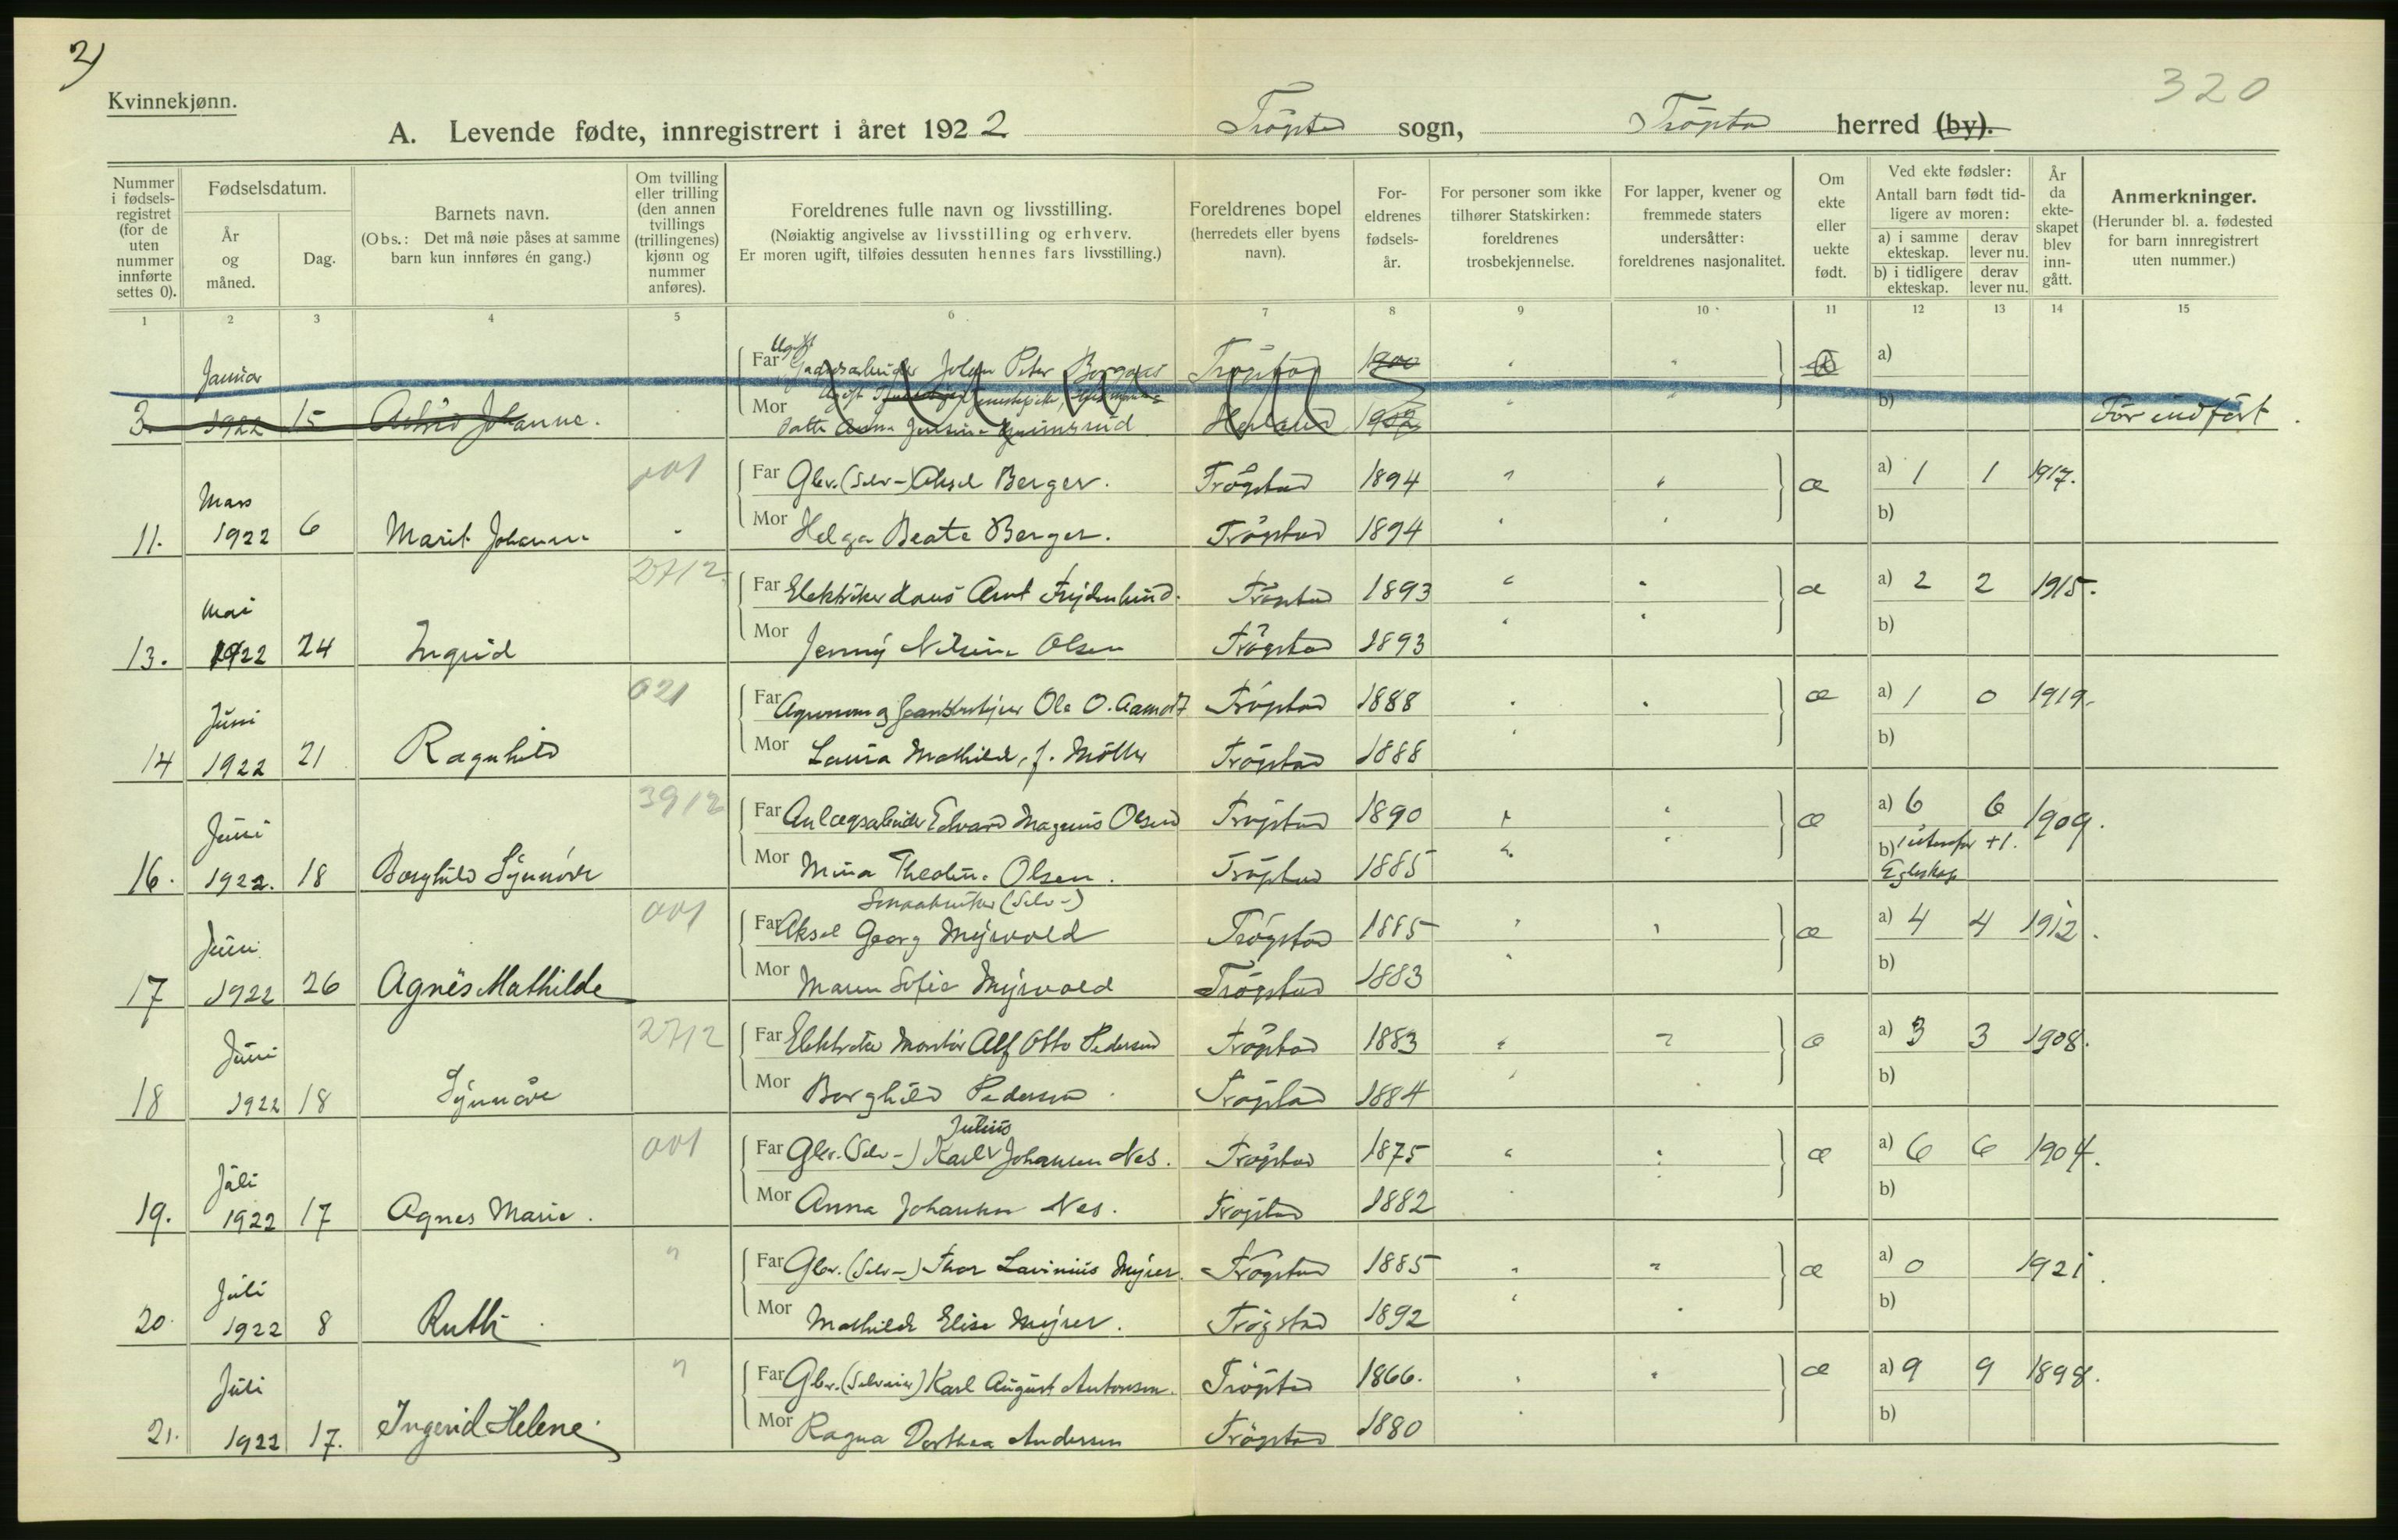 2)
Kvinnekjønn.
320
A. Levende fødte, innregistrert i året 1922 Trögstad sogn, Trögstad herred (by).
Nummer i fødsels-registret (for de uten nummer innførte settes 0).
Fødselsdatum.
År og måned.
Dag.
Barnets navn.
(Obs.: Det må nøie påses at samme barn kun innføres én gang.)
Om tvilling eller trilling (den annen tvillings (trillingenes) kjønn og nummer anføres).
Foreldrenes fulle navn og livsstilling.
(Nøiaktig angivelse av livsstilling og erhverv.
Er moren ugift, tilføies dessuten hennes fars livsstilling.)
Foreldrenes bopel (herredets eller byens navn).
For-eldrenes fødsels-år.
For personer som ikke tilhører Statskirken: foreldrenes trosbekjennelse.
For lapper, kvener og fremmede staters undersåtter: foreldrenes nasjonalitet.
Om ekte eller uekte født.
Ved ekte fødsler: Antall barn født tid-ligere av moren:
a) i samme ekteskap. derav lever nu.
b) i tidligere ekteskap. derav lever nu.
År da ekte-skapet blev inn-gått.
Anmerkninger.
(Herunder bl. a. fødested for barn innregistrert uten nummer.)
1 2 3 4 5 6 7 8 9 10 11 12 13 14 15
Far Ugift Gaardsarbeider Johan Peter Trögstad 1900 a)
3. Januar 1922 15 Astrid Johanne. Mor Anna Jensine 1902 b) Før indført.
001 Far Gbr. (Selv-) Aksel Berger. Trögstad 1894 æ a) 1 1 1917.
11. Mars 1922 6 Marit Johanne - Mor Helga Beate Berger. Trögstad 1894 b)
2712 Far Elektriker Hans Arnt Frydenlund. Trögstad 1893 æ a) 2 2 1915.
13. Mai 1922 24 Ingrid Mor Jenny Nilsine Olsen Trögstad 1893 b)
021 Far Agronom og Ole O. Aamodt Trögstad 1888 æ a) 1 0 1919.
14 Juni 1922 21 Ragnhild Mor Laura Mathilde, f. Möller Trögstad 1888 b)
3912 Far Anlægsarbeider Edvard Magnus Olsen Trögstad 1890 æ a) 6 6 1909.
16. Juni 1922. 18 Borghild Synnöve Mor Mina Theoline Olsen. Trögstad 1885 b) 1 utenfor +1. Egteskap
001 Smaabruker (Selv-)
Far Aksel Georg Myrvold Trögstad 1885 æ a) 4 4 1912.
17 Juni 1922 26 Agnes Mathilde Mor Maren Sofie Myrvold Trögstad 1883 b)
2712 Far Elektriker Montör Alf Otto Pedersen Trögstad 1883 æ a) 3 3 1908.
18 Juni 1922 18 Synnöve Mor Borghild Pedersen. Trögstad 1884 b)
001 Far Gbr. (Selv-) Karl Julius Johansen Nes. Trögstad 1875 æ a) 6 6 1904.
19. Juli 1922 17 Agnes Marie. Mor Anna Johansen Nes. Trögstad 1882 b)
" Far Gbr. (Selv-) Thor Lavinius Myrer. Trögstad 1885 æ a) 0 1921.
20. Juli 1922 8 Ruth. Mor Mathilde Elise Myrer. Trögstad 1892 b)
" Far Gbr. (Selveier) Karl August Antonsen. Trögstad 1866. æ a) 9 9 1898.
21. Juli 1922 17. Ingerid Helene. Mor Ragna Dorthea Andersen Trögstad 1880 b)